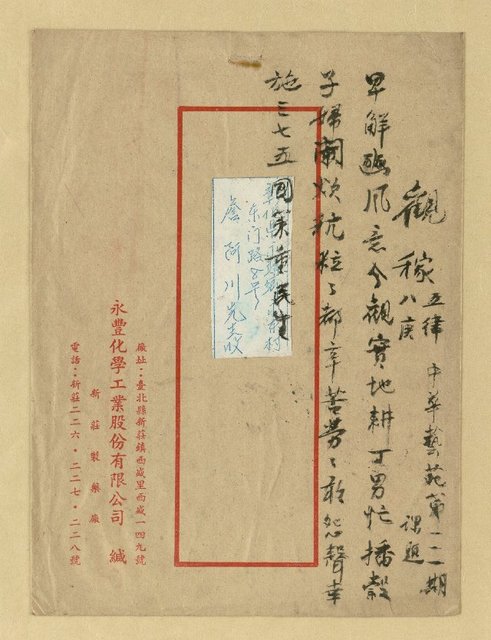 觀稼 五律 八庚 中華藝苑第一二期 課題
早解豳風意今觀實地耕丁男忙播穀
子婦關炊秔粒〻都辛苦勞〻敢怨聲幸
施三七五國策重民生
東門路8号
詹阿川先生收
廠址：臺北縣新莊鎮西盛里西盛一四九號
永豐化學工業股份有限公司 緘
新莊製藥廠
電話：新莊二二六・二二七・二二八號